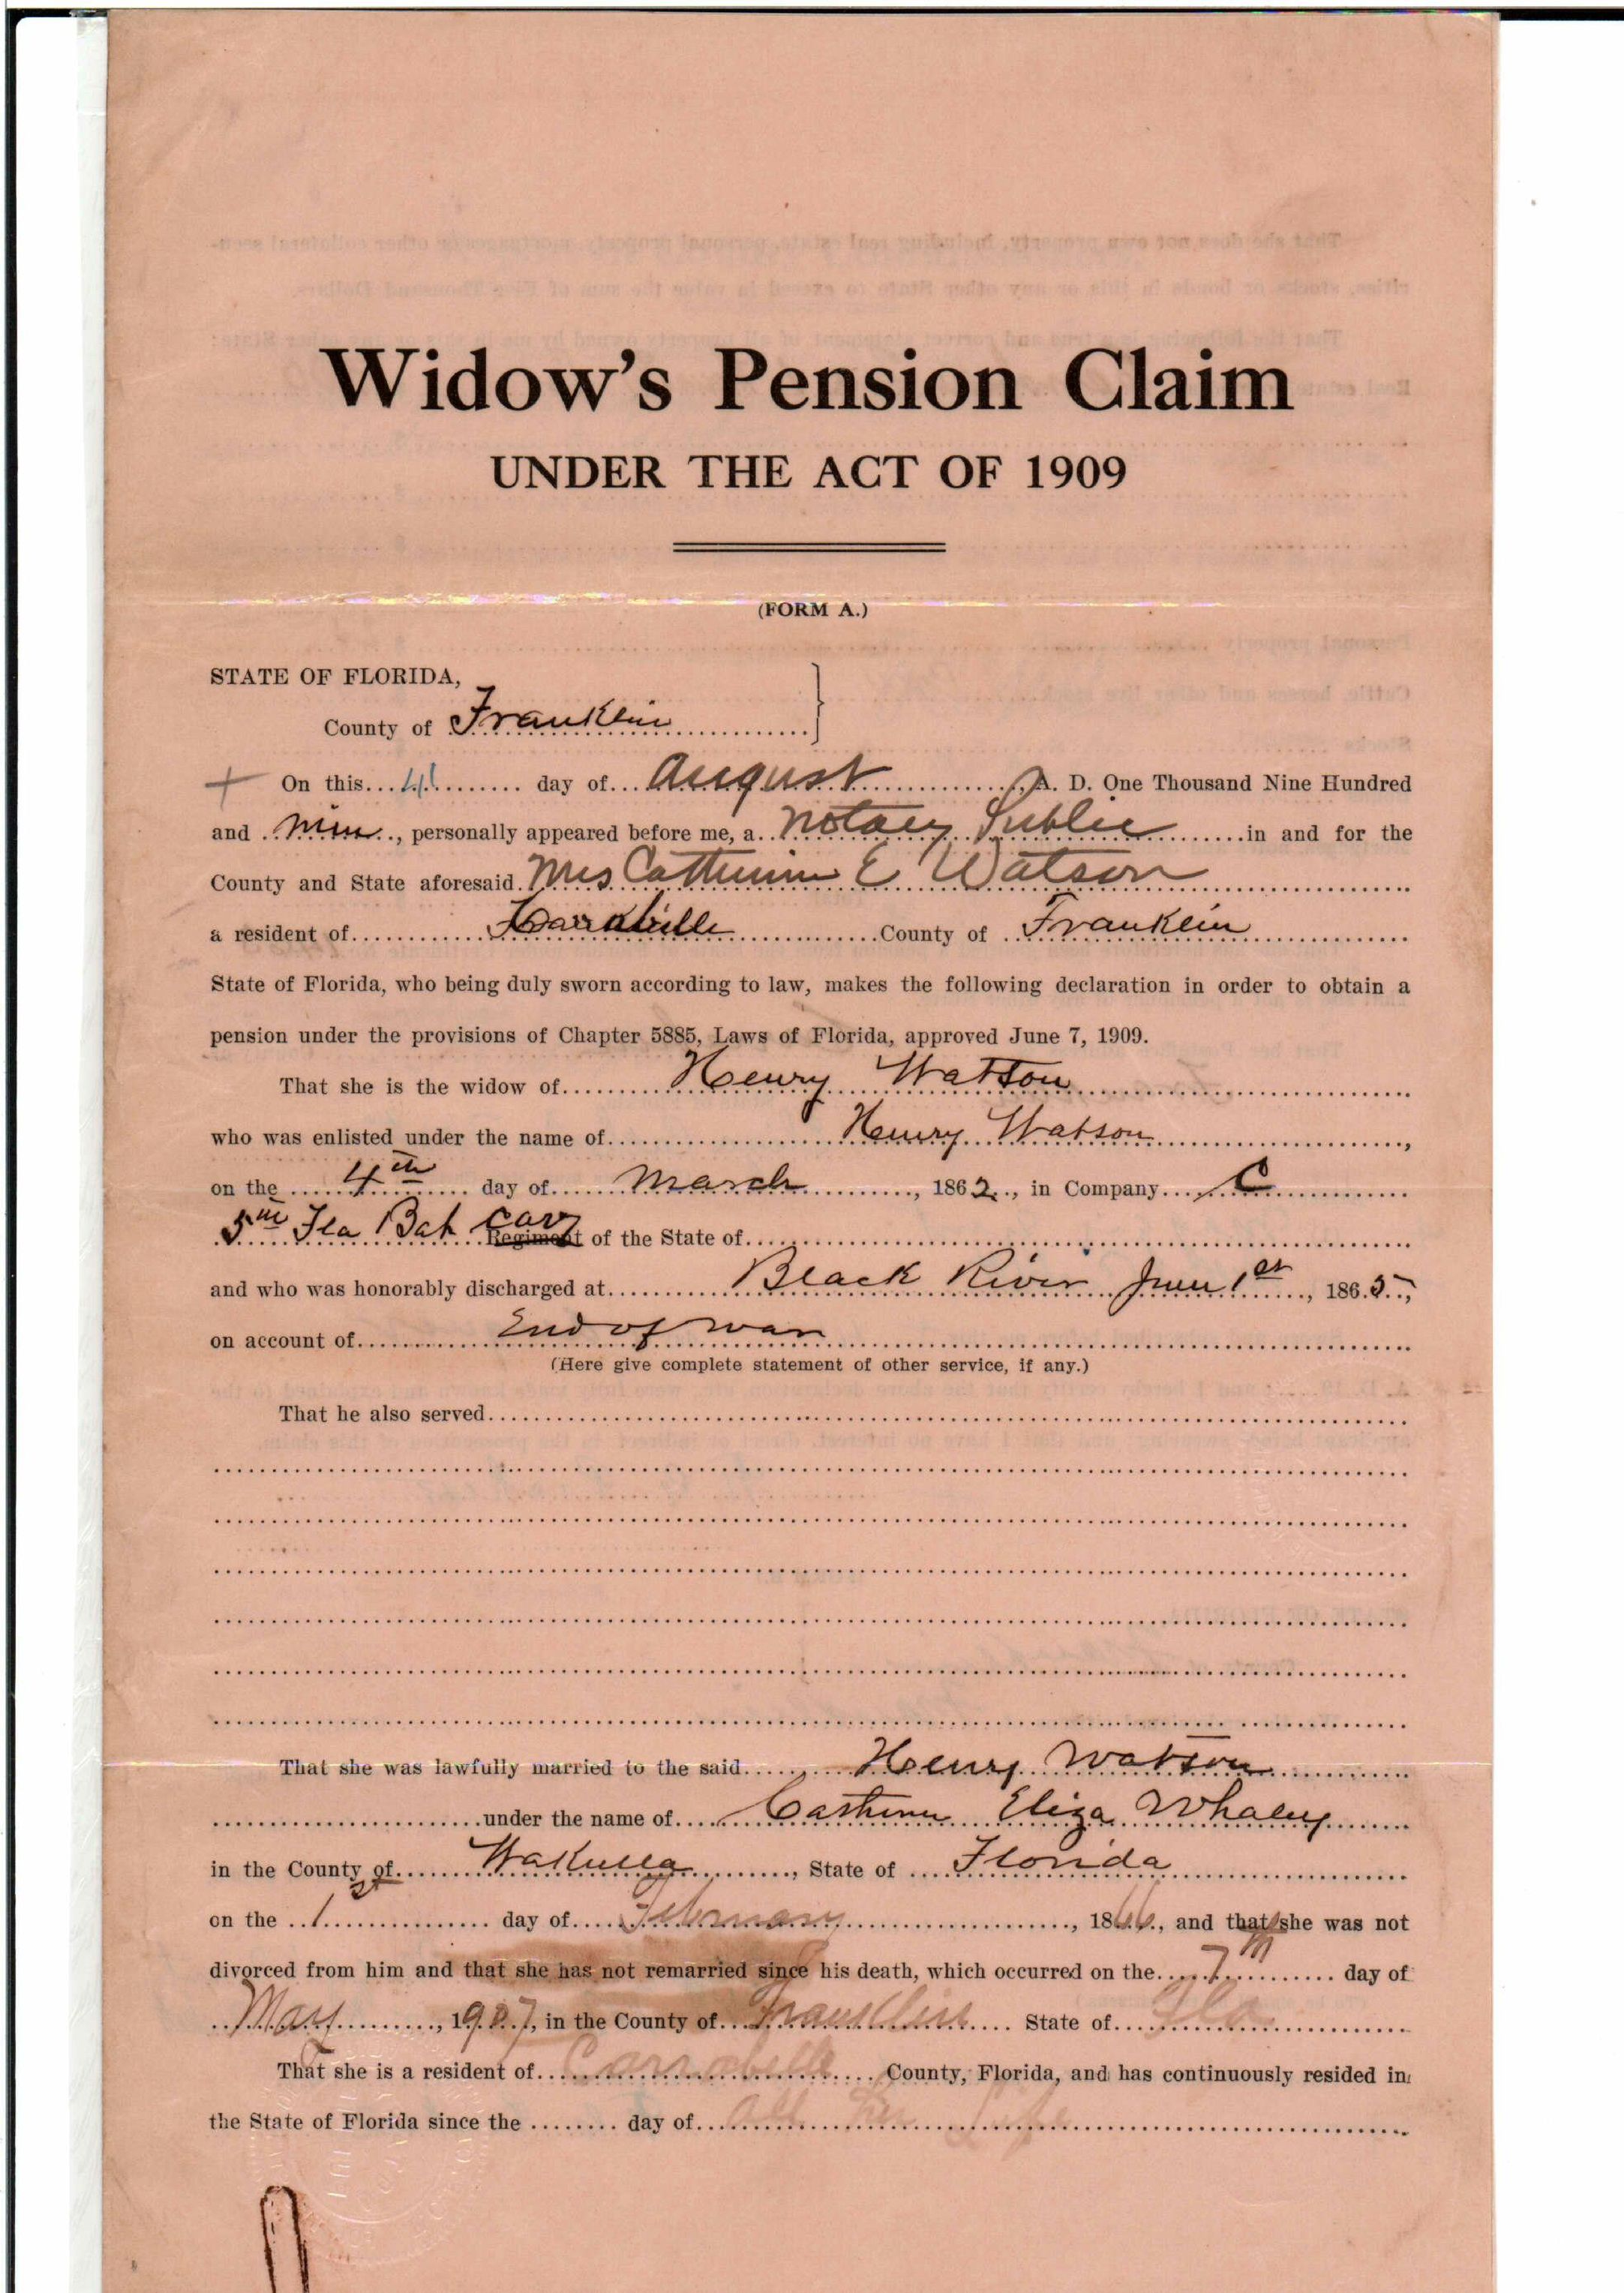 Widow's Pension Claim
UNDER THE ACT OF 1909
(FORM A.)
STATE OF FLORIDA,
County of Franklin
On this day of August, A. D. One Thousand Nine Hundred
and nine, personally appeared before me, a notary Public in and for the
County and State aforesaid Mrs E Watson
a resident of County of Franklin
State of Florida, who being duly sworn according to law, makes the following declaration in order to obtain a
pension under the provisions of Chapter 5885, Laws of Florida, approved June 7, 1909.
That she is the widow of Henry Watson
who was enlisted under the name of Henry Watson,
on the 4th day of March, 1862, in Company C
5th Fla Bat Cav Regiment of the State of
and who was honorably discharged at Black River June 1st, 1865,
on account of End of war
(Here give complete statement of other service, if any.)
That he also served
That she was lawfully married to the said Henry Watson
under the name of Eliza Whaley
in the County of Wakulla, State of Florida
on the 1st day of February, 1866, and that she was not
divorced from him and that she has not remarried since his death, which occurred on the 7th day of
May, 1907, in the County of Franklin State of Fla
That she is a resident of Carrabelle County, Florida, and has continuously resided in
the State of Florida since the day of All her Life